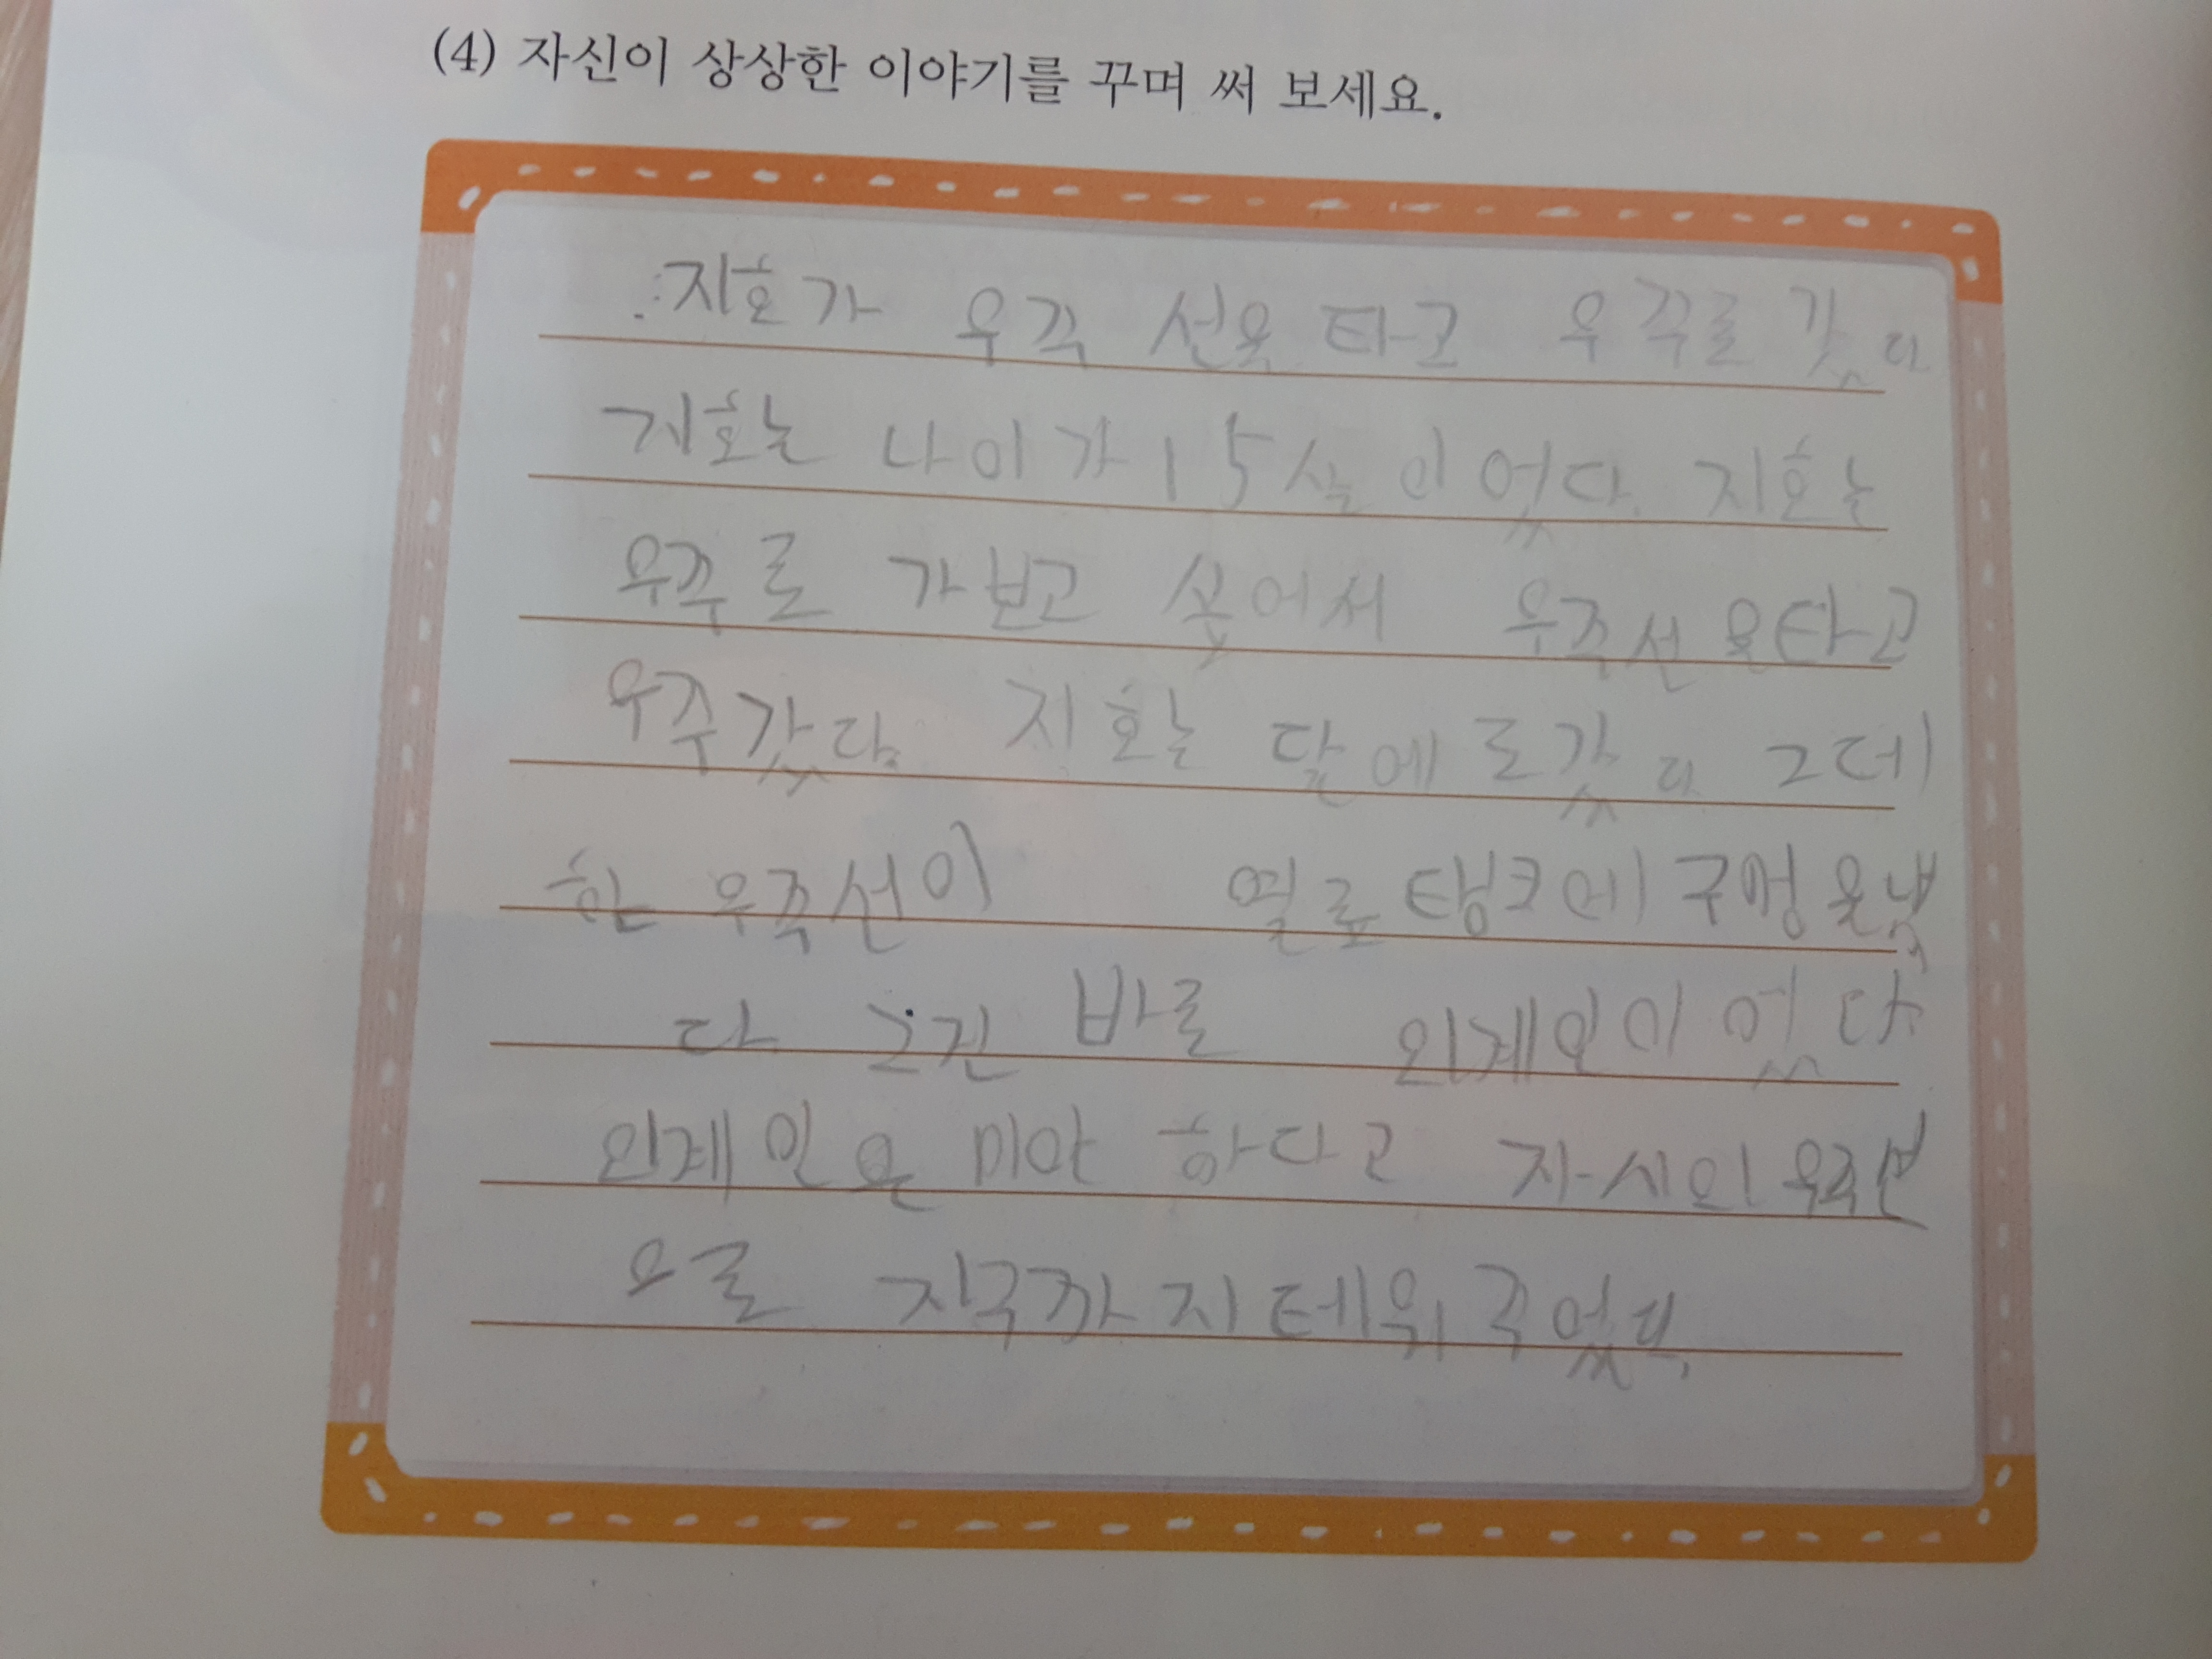 (4) 자신이 상상한 이야기를 꾸며 써 보세요.
지호가 우주 선을 타고 우주로 갔다
지호는 나이가 15살 이었다. 지호는
우주로 가보고 싶어서 우주선을타고
우주갔다. 지호는 달에로갔다 그데
한 우주선이 열료탱크에 구멍을냈
다 그건 바로 외계인이었다.
외계인은 미안 하다고 자시의 우주선
으로 지구까지 테워 주었다.